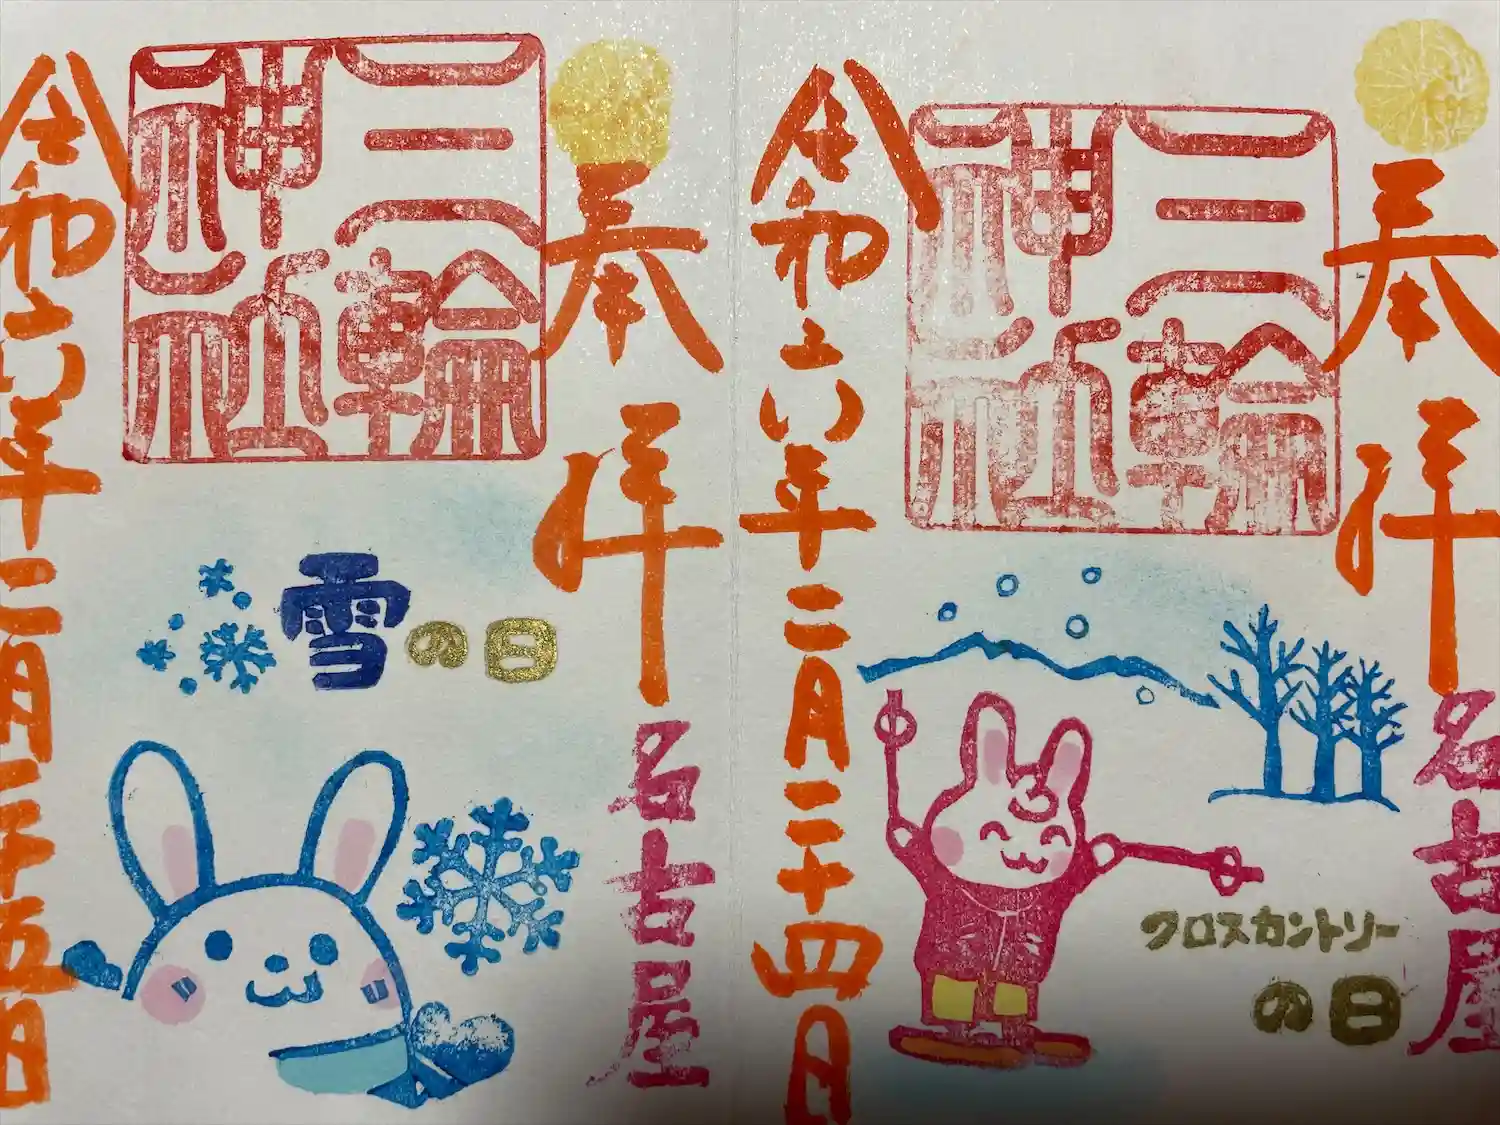 奉拝
名古屋
三輪
神社
クロスカントリー
の日
令和六年二月二十四日
奉拝
名古屋
三輪
神社
雪の日
令和六年二月二十五日